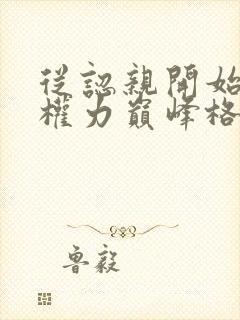 從認親開始
權力巔峰格
魯毅